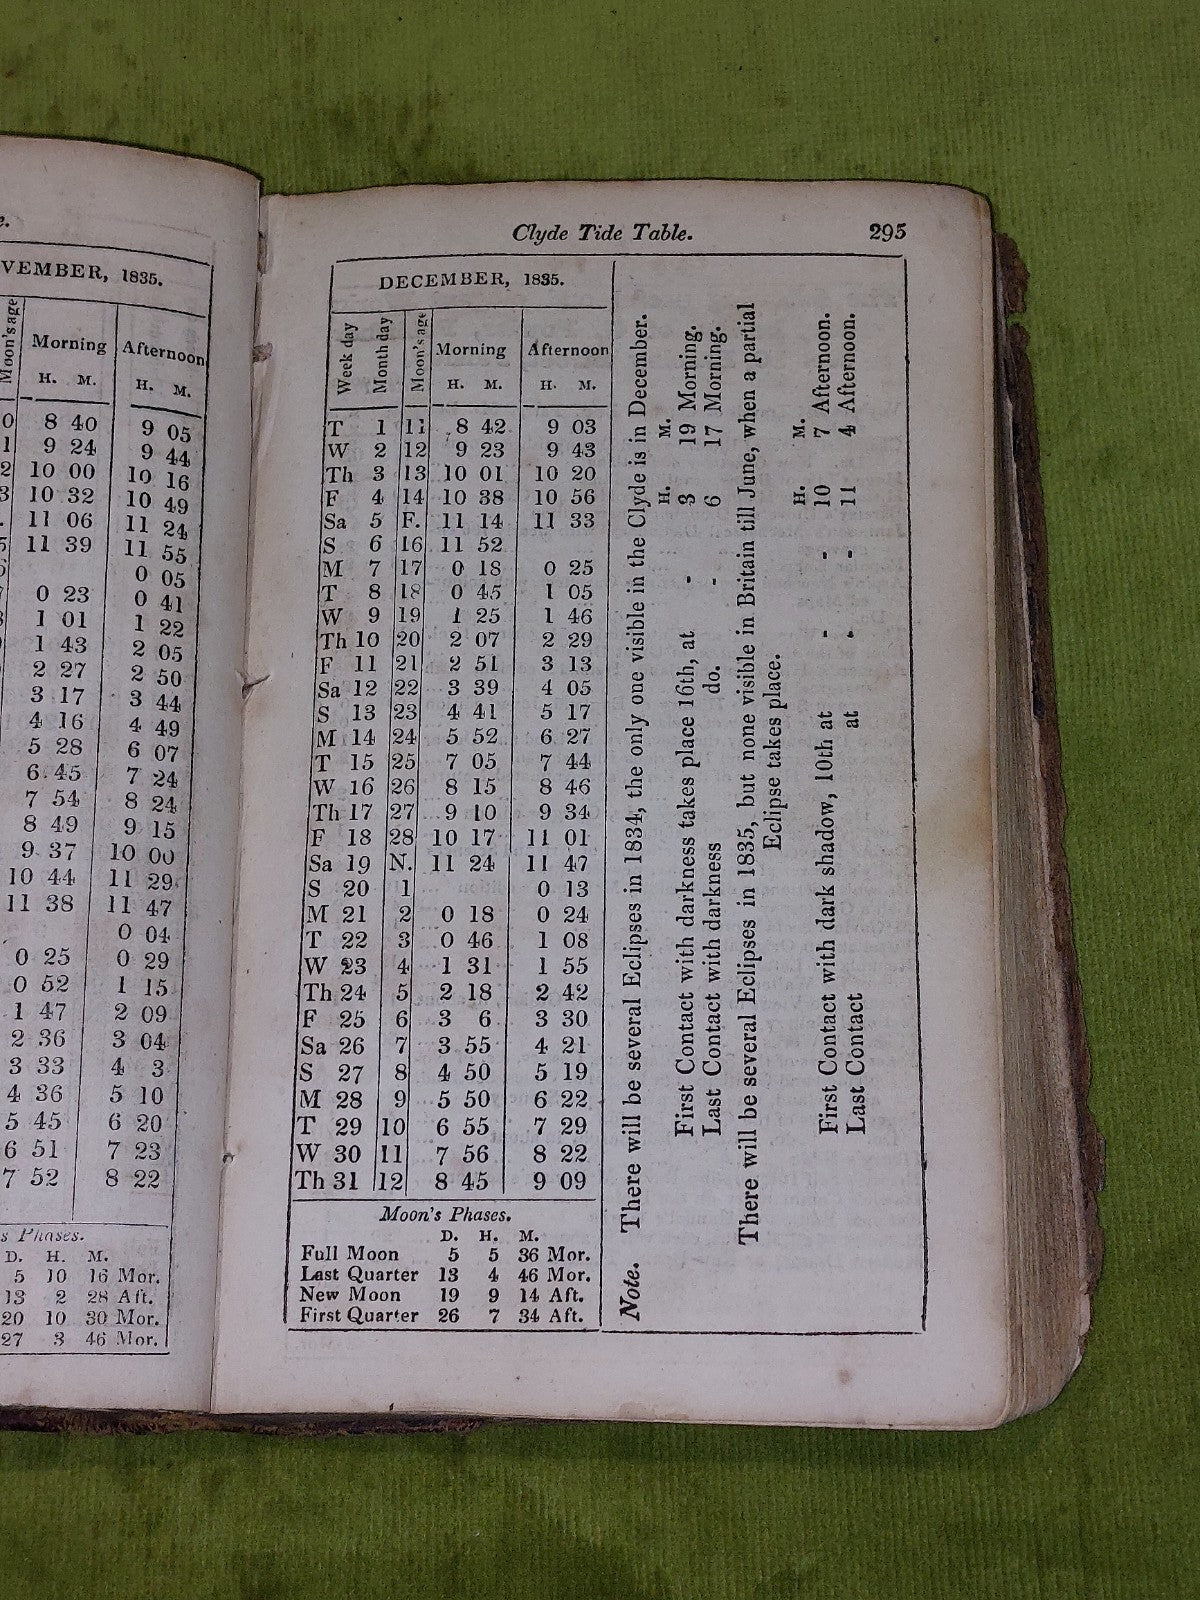 e.
VEMBER, 1835.
Moon's age
Morning Afternoon
H. M. H. M.
0 8 40 9 05
1 9 24 9 44
2 10 00 10 16
3 10 32 10 49
. 11 06 11 24
5 11 39 11 55
6 0 05
7 0 23 0 41
1 01 1 22
1 43 2 05
2 27 2 50
3 17 3 44
4 16 4 49
5 28 6 07
6 45 7 24
7 54 8 24
8 49 9 15
9 37 10 00
10 44 11 29
11 38 11 47
0 04
0 25 0 29
0 52 1 15
1 47 2 09
2 36 3 04
3 33 4 3
4 36 5 10
5 45 6 20
6 51 7 23
7 52 8 22
s Phases.
D. H. M.
5 10 16 Mor.
13 2 28 Aft.
20 10 30 Mor.
27 3 46 Mor.
Clyde Tide Table. 295
DECEMBER, 1835.
Week day Month day Moon's age Morning Afternoon
H. M. H. M.
T 1 11 8 42 9 03
W 2 12 9 23 9 43
Th 3 13 10 01 10 20
F 4 14 10 38 10 56
Sa 5 F. 11 14 11 33
S 6 16 11 52
M 7 17 0 18 0 25
T 8 18 0 45 1 05
W 9 19 1 25 1 46
Th 10 20 2 07 2 29
F 11 21 2 51 3 13
Sa 12 22 3 39 4 05
S 13 23 4 41 5 17
M 14 24 5 52 6 27
T 15 25 7 05 7 44
W 16 26 8 15 8 46
Th 17 27 9 10 9 34
F 18 28 10 17 11 01
Sa 19 N. 11 24 11 47
S 20 1 0 13
M 21 2 0 18 0 24
T 22 3 0 46 1 08
W 23 4 1 31 1 55
Th 24 5 2 18 2 42
F 25 6 3 6 3 30
Sa 26 7 3 55 4 21
S 27 8 4 50 5 19
M 28 9 5 50 6 22
T 29 10 6 55 7 29
W 30 11 7 56 8 22
Th 31 12 8 45 9 09
Moon's Phases.
D. H. M.
Full Moon 5 5 36 Mor.
Last Quarter 13 4 46 Mor.
New Moon 19 9 14 Aft.
First Quarter 26 7 34 Aft.
Note. There will be several Eclipses in 1834, the only one visible in the Clyde is in December.
H. M.
First Contact with darkness takes place 16th, at - 3 19 Morning.
Last Contact with darkness do. - 6 17 Morning.
There will be several Eclipses in 1835, but none visible in Britain till June, when a partial
Eclipse takes place.
H. M.
First Contact with dark shadow, 10th at - - 10 7 Afternoon.
Last Contact at - - 11 4 Afternoon.